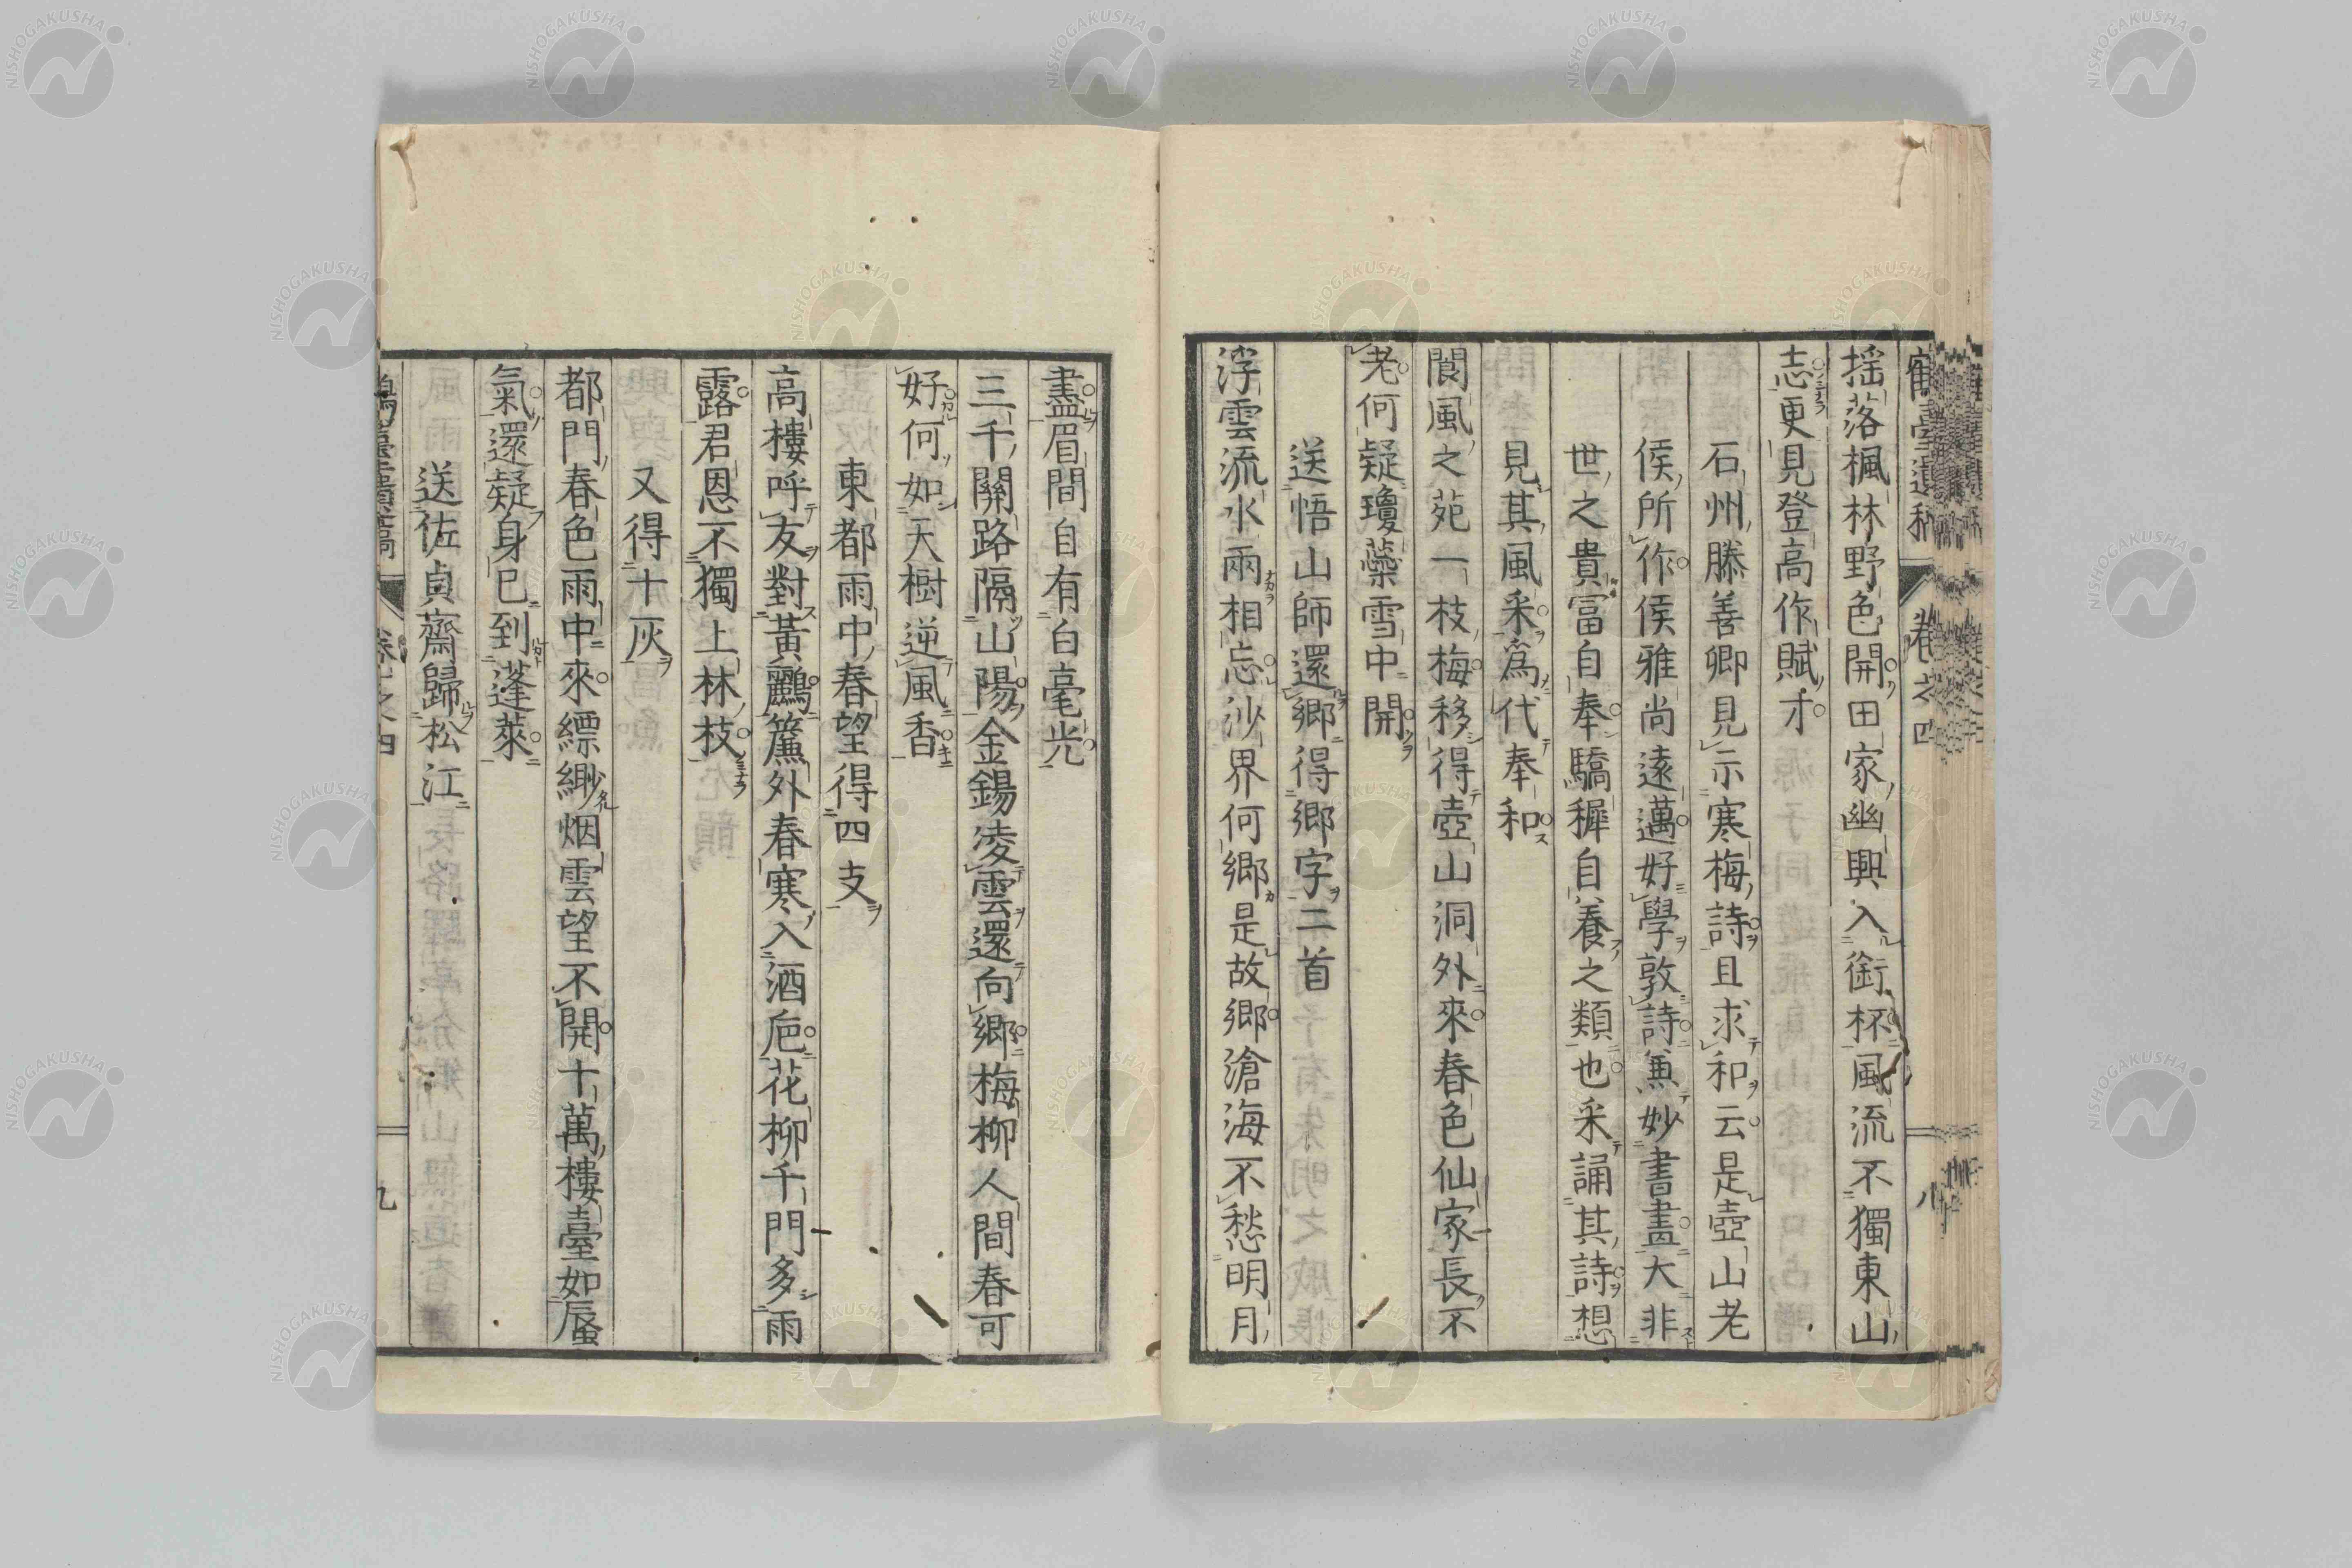 搖落楓林野色開田家幽興入銜杯風流不獨東山
志更見登高作賦才
石州滕善卿見示寒梅詩且求和云是壺山老
侯所作侯雅尚遠邁好學敦詩兼妙書畫大非
世之貴富自奉驕穉自養之類也采誦其詩想
見其風采為代奉和
閬風之苑一枝梅移得壺山洞外來春色仙家長不
老何疑瓊蘂雪中開
送悟山師還鄉得鄉字二首
浮雲流水兩相忘沙界何鄉是故鄉滄海不愁明月
盡眉間自有白毫光
三千關路隔山陽金錫凌雲還向鄉梅柳人間春可
好何如天樹逆風香
東都雨中春望得四支
高樓呼友對黃鸝簾外春寒入酒巵花柳千門多雨
露君恩不獨上林枝
又得十灰
都門春色雨中來縹緲烟雲望不開十萬樓臺如蜃
氣還疑身已到蓬萊
送佐貞齋歸松江
卷之四
八
九
NISHOGAKUSHA